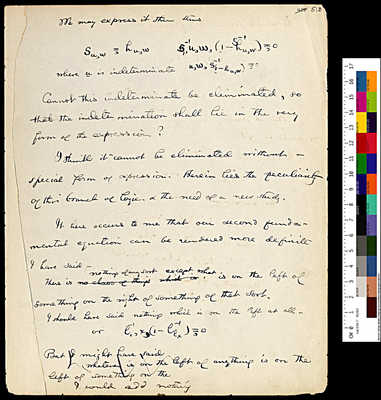 We may express it then thus
where u is indeterminate
Cannot this indeterminate be eliminated, so
that the indetermination shall lie in the very
form of the expression?
I think it cannot be eliminated without a
special form of expression. Herein lies the peculiarity
of this branch of logic & the need of a new study.
It here occurs to me that our second funda-
mental equation can be rendered more definite
I have said –
nothing of any sort except what
there is no class of things which is is on the left of
something on the right of something of that sort.
I should have said nothing which is on the left at all –
or
But I might have said
whatever is on the left of anything is on the
left of something on the
I would add nothing